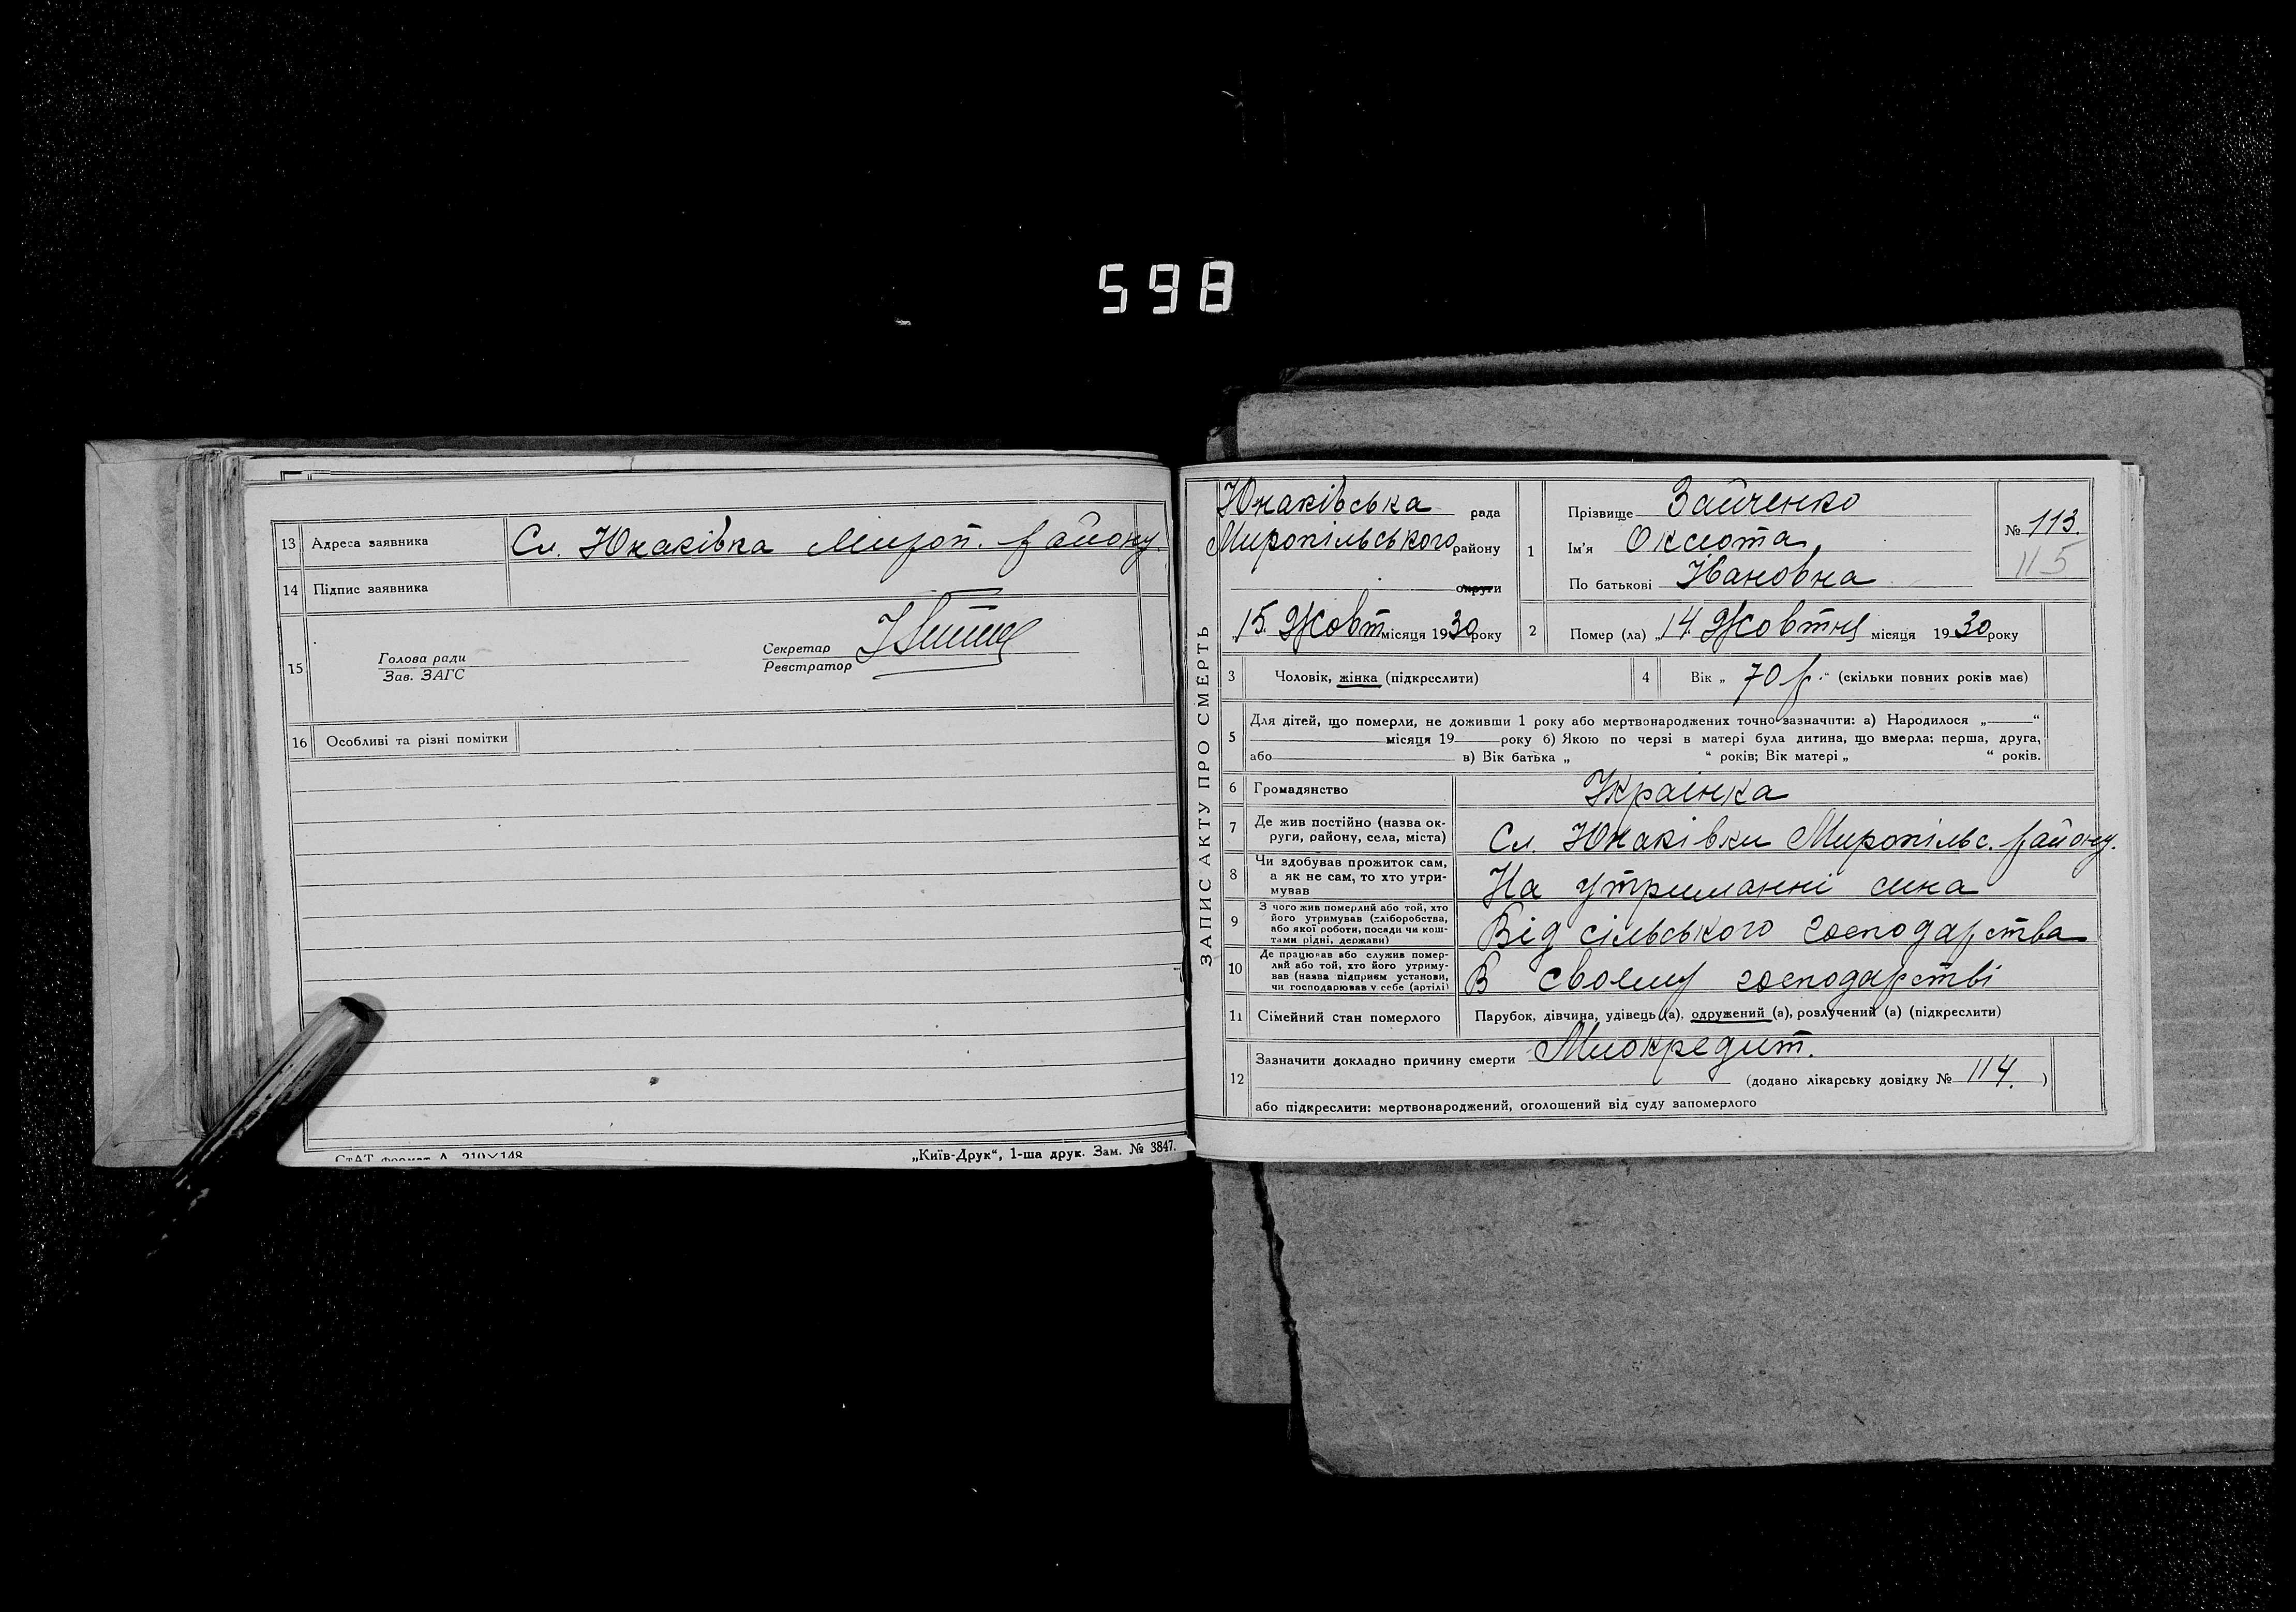 598
13 Адреса заявника Сл. Юнаківка Мироп. району.
14 Підпис заявника
15 Голова ради
Зав. ЗАГС
Секретар
Реєстратор
16 Особливі та різні помітки
СтАТ формат А 210×148
„Київ-Друк“, 1-ша друк. Зам. № 3847.
ЗАПИС АКТУ ПРО СМЕРТЬ
Юнаківська рада
Миропільського району
округи
15. Жовт місяця 1930 року
1 Прізвище Зайченко
Ім'я Оксюта,
По батькові Івановна
№ 113.
115
2 Помер (ла) „14. Жовтня місяця 1930 року
3 Чоловік, жінка (підкреслити)
4 Вік „ 70 р. “ (скільки повних років має)
5 Для дітей, що померли, не доживши 1 року або мертвонароджених точно зазначити: а) Народилося „ “
місяця 19 року б) Якою по черзі в матері була дитина, що вмерла: перша, друга,
або в) Вік батька „ “ років; Вік матері „ “ років.
6 Громадянство Українка
7 Де жив постійно (назва ок-
руги, району, села, міста) Сл. Юнаківки Миропільс. району.
8 Чи здобував прожиток сам,
а як не сам, то хто утри-
мував На утриманні сина
9 З чого жив померлий або той, хто
його утримував (хліборобства,
або якої роботи, посади чи кош-
тами рідні, держави) Від сільського господарства
10 Де працював або служив помер-
лий або той, хто його утриму-
вав (назва підприєм установи,
чи господарював у себе (артілі) В своему господарстві
11 Сімейний стан померлого Парубок, дівчина, удівець (а), одружений (а), розлучений (а) (підкреслити)
12 Зазначити докладно причину смерти Миокредит.
(додано лікарську довідку № 114. )
або підкреслити: мертвонароджений, оголошений від суду запомерлого